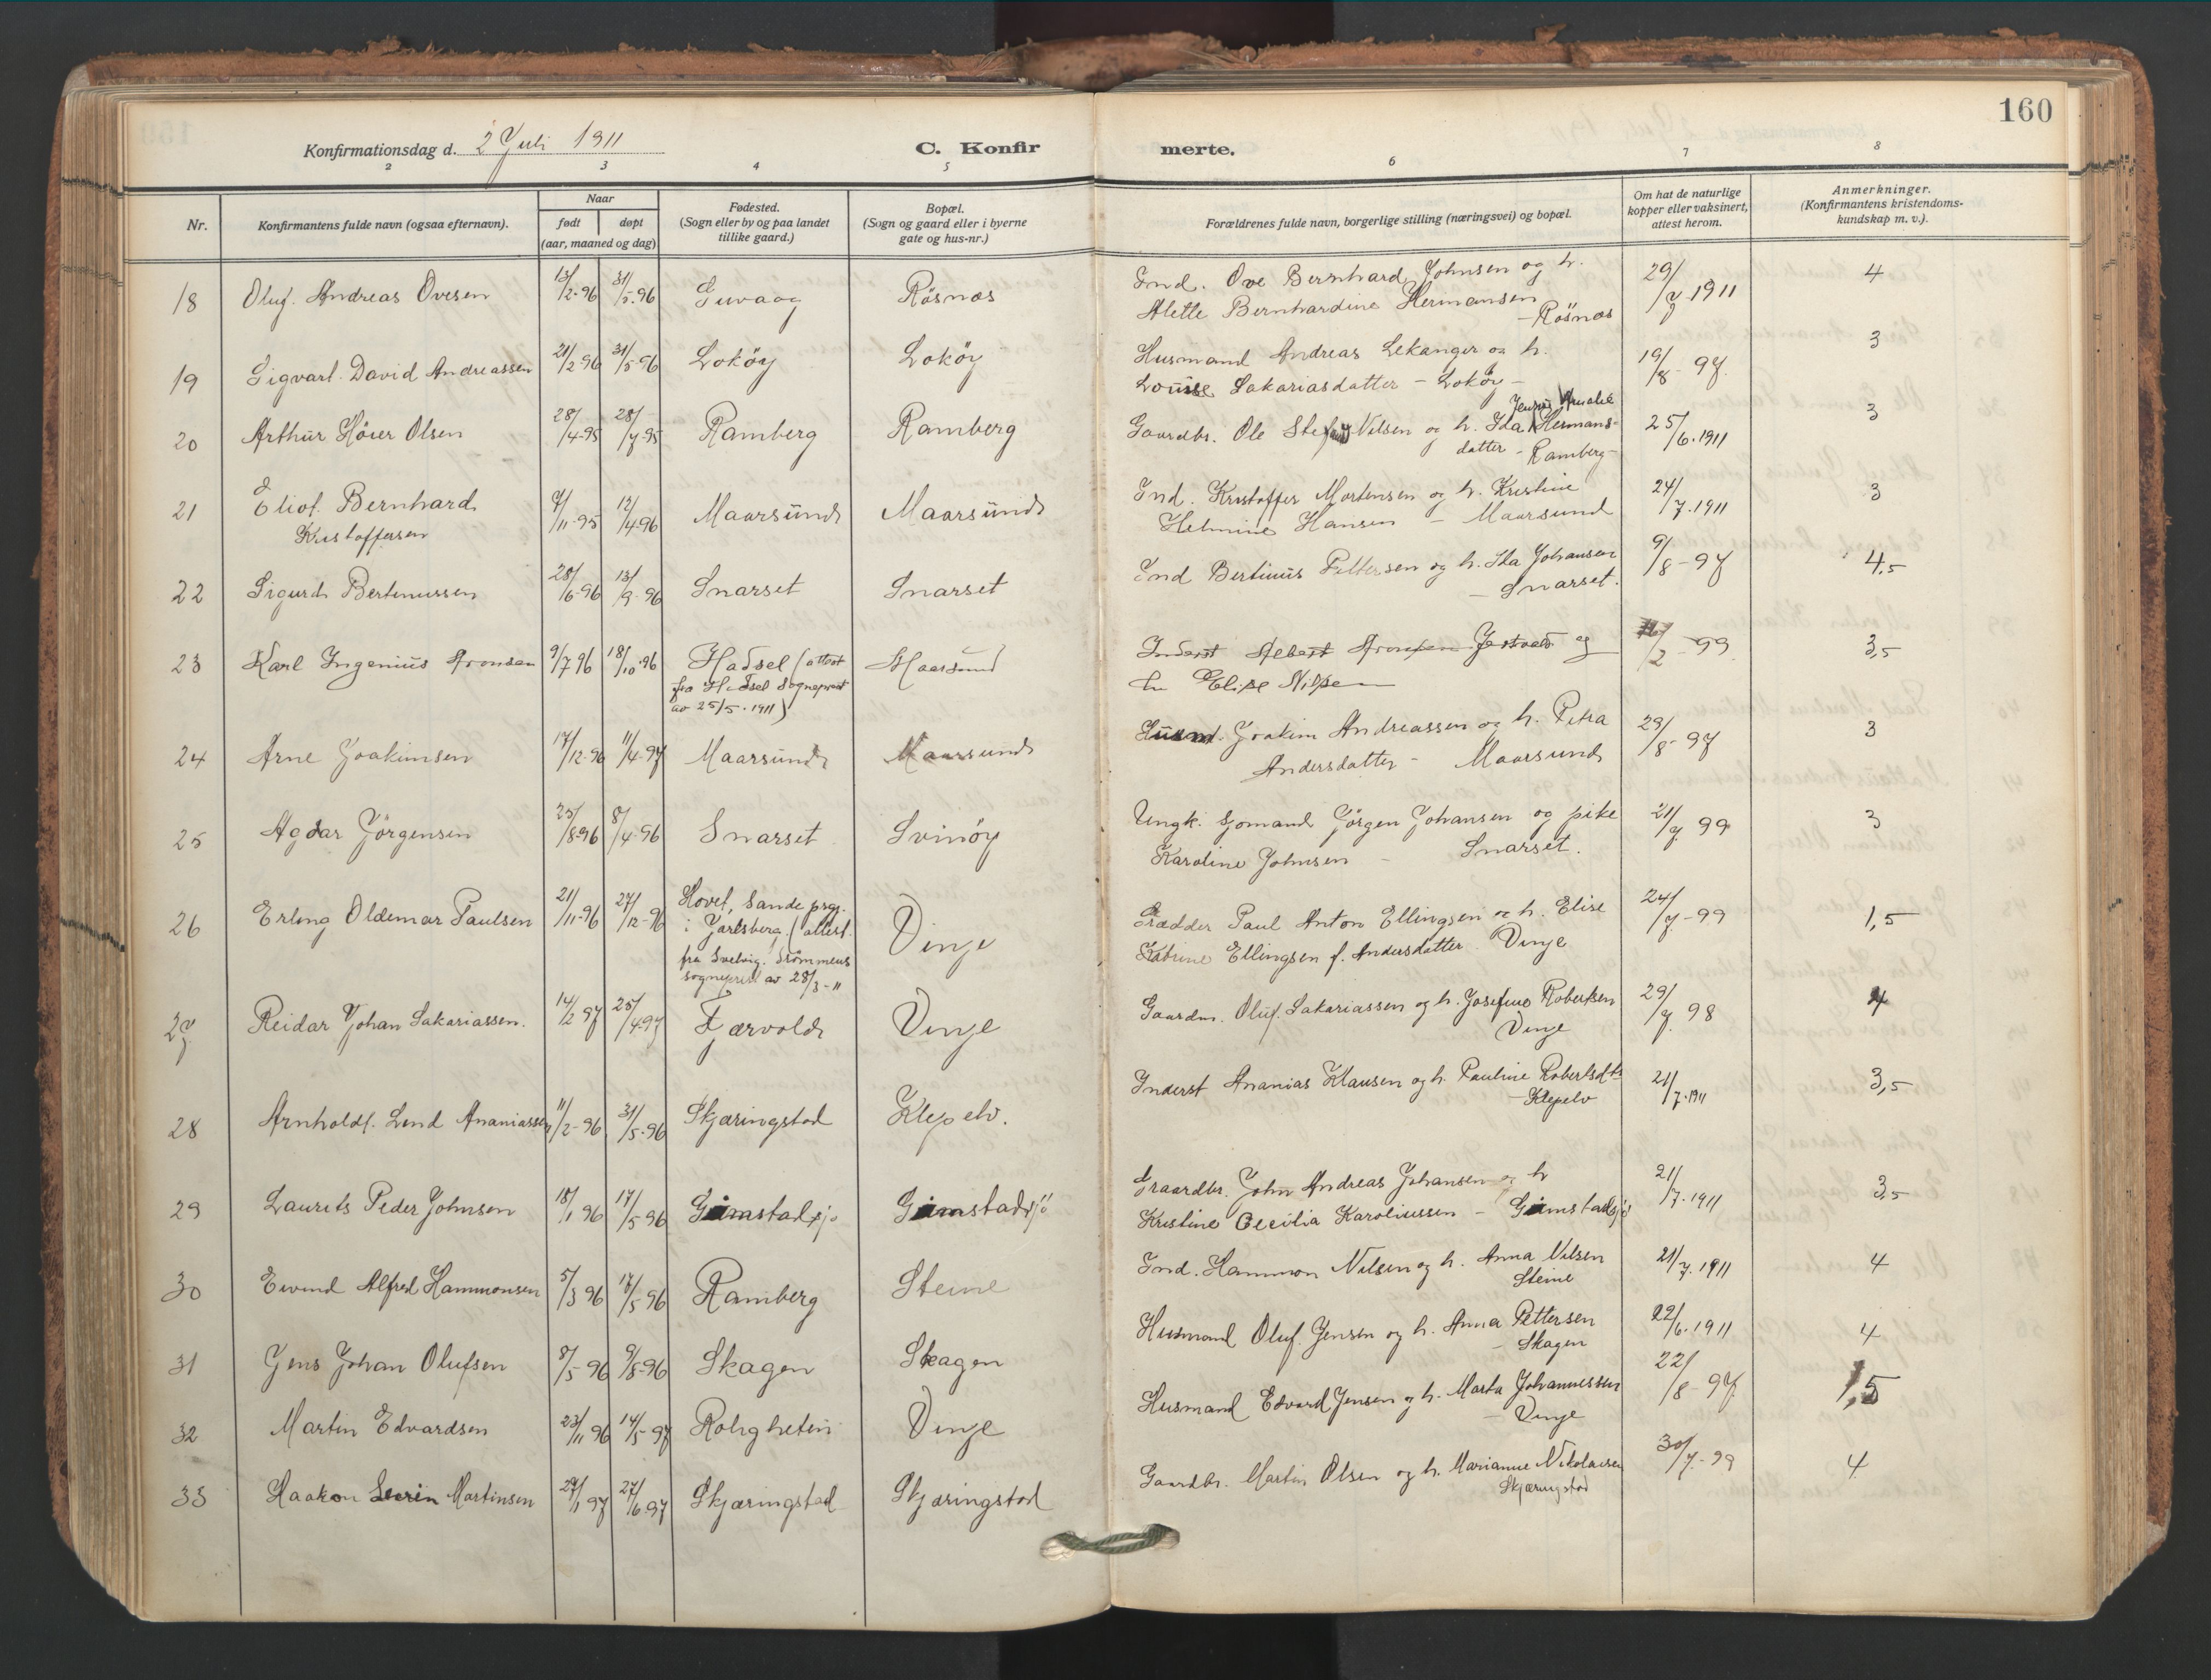 160
Konfirmationsdag d. 2 Juli 1911
C. Konfirmerte.
2 3 4 5 6 7 8
Nr.
Konfirmantens fulde navn (ogsaa efternavn).
Naar
født døpt
(aar, maaned og dag)
Fødested.
(Sogn eller by og paa landet
tillike gaard.)
Bopæl.
(Sogn og gaard eller i byerne
gate og hus-nr.)
Forældrenes fulde navn, borgerlige stilling (næringsvei) og bopæl.
Om hat de naturlige
kopper eller vaksinert,
attest herom.
Anmerkninger.
(Konfirmantens kristendoms-
kundskap m. v.).
18 Oluf. Andreas Ovesen 13/2-96 31/5.96 Guvaag Røsnæs Ind. Ove Bernhard Johnsen og h. 29/7 1911 4
Alette Bernhardine Hermansen
- Røsnæs
19 Sigvart. David Andreassen 21/2-96 31/5-96 Lokøy Lokøy Husmand Andreas Lekanger og h. 19/8-97. 3
Louise Sakariasdatter - Lokøy -
20 Arthur Höier Olsen 28/4-95 28/7-95 Ramberg Ramberg Gaardbr. Ole Nilsen og h. Ida Hermans- 25/6.1911 3
datter - Ramberg -
21 Eliot. Bernhard 7/11-95 12/4-96 Maarsund Maarsund Ind. Kristoffer Mortensen og h. Kristine 24/7.1911 3
Kristoffersen Helmine Hansen - Maarsund
22 Sigurd Bertinussen 28/6-96 13/9-96 Snarset Snarset Ind Bertinus Pettersen og h. Ida Johansen 9/8-97 4,5
- Snarset.
23 Karl Ingenius Aronsen 9/7 96 18/10.96 Hadsel (attest Maarsund Inderst Albert Aronsen Jestvold og /2 - 99 3,5
fra Hadsel Sogneprest h. Elise Nilsen
av 25/5. 1911)
24 Arne Joakimsen 17/12-96 11/4-97 Maarsund Maarsund Husmd. Joakim Andreassen og h. Petra 29/8-97 3
Andersdatter - Maarsund
25 Agdar Jörgensen 25/8-96 8/4-96 Snarset Svinöy Ungk. Sjömand Jörgen Johansen og pike 21/7 99 3
Karoline Johnsen - Snarset.
26 Erling Oldemar Paulsen 21/11-96 27/12-96 Hovet, Sande prgj. Vinje Fædder Paul Anton Ellingsen og h. Elise 24/7-99 1,5
i Jarlsberg. (attest Katrine Ellingsen f. Andersdatter. Vinje
fra Svelvig. Strömmens
sogneprest av 28/3-11
27 Reidar Johan Sakariassen. 14/2 97 25/4-97 Fjærvold Vinje Gaardm. Oluf. Sakariassen og h. Josefine Robertsen 29/7 98 4
Vinje
28 Arnholdt. Lind Ananiassen 11/2-96 31/5-96 Skjæringstad Klepelv. Inderst Ananias Klausen og h. Pauline Robertsdtr 21/7.1911 3,5
- Klepelv
29 Laurits Peder Johnsen 18/1 96 17/5-96 Gimstadsjö Gimstadsjö Graardbr. John Andreas Johansen og h 21/7.1911 3,5
Kristine Cecilia Karoliussen - Gimstadsjö
30 Eivind Alfred Hammonsen 5/3 96 17/5-96 Ramberg Steine Ind. Hammon Nilsen og h. Anna Nilsen 21/7. 1911 4
Steine
31 Jens Johan Olufsen 8/5-96 9/8-96 Skagen Skagen Husmand Oluf. Jensen og h. Anna Pettersen 22/6.1911 4
- Skagen
32 Martin Edvardsen 23/11 96 14/5-97 Roligheten Vinje Husmand Edvard Jensen og h. Marta Johannessen 22/8-97 1,5
- Vinje
33 Haakon Severin Martinsen 29/1 97 27/6-97 Skjæringstad Skjæringstad Gaardbr. Martin Olsen og h. Marianne Nikolaisen 30/7-99 4
Skjæringstad